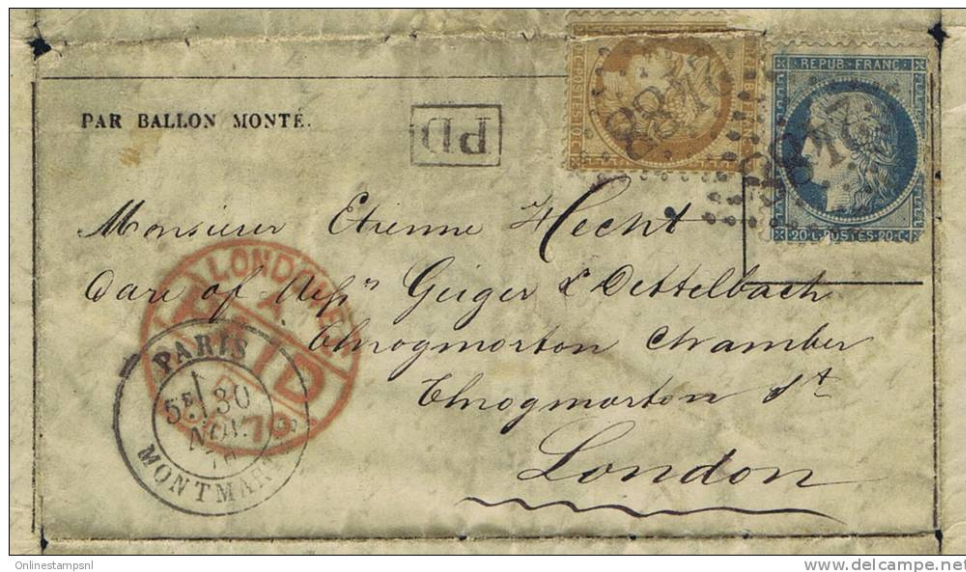 REPUB. FRANC.
PAR BALLON MONTÉ.
PD
2817
20 C. POSTES 20 C.
Monsieur Etienne Hecht
Care of Messrs Geiger & Dettelbach
Throgmorton Chamber
Throgmorton St
London
LONDON
PAID
PARIS
5E 30
NOV.
70
MONTMARTRE
Onlinestampsnl
delcampe.net